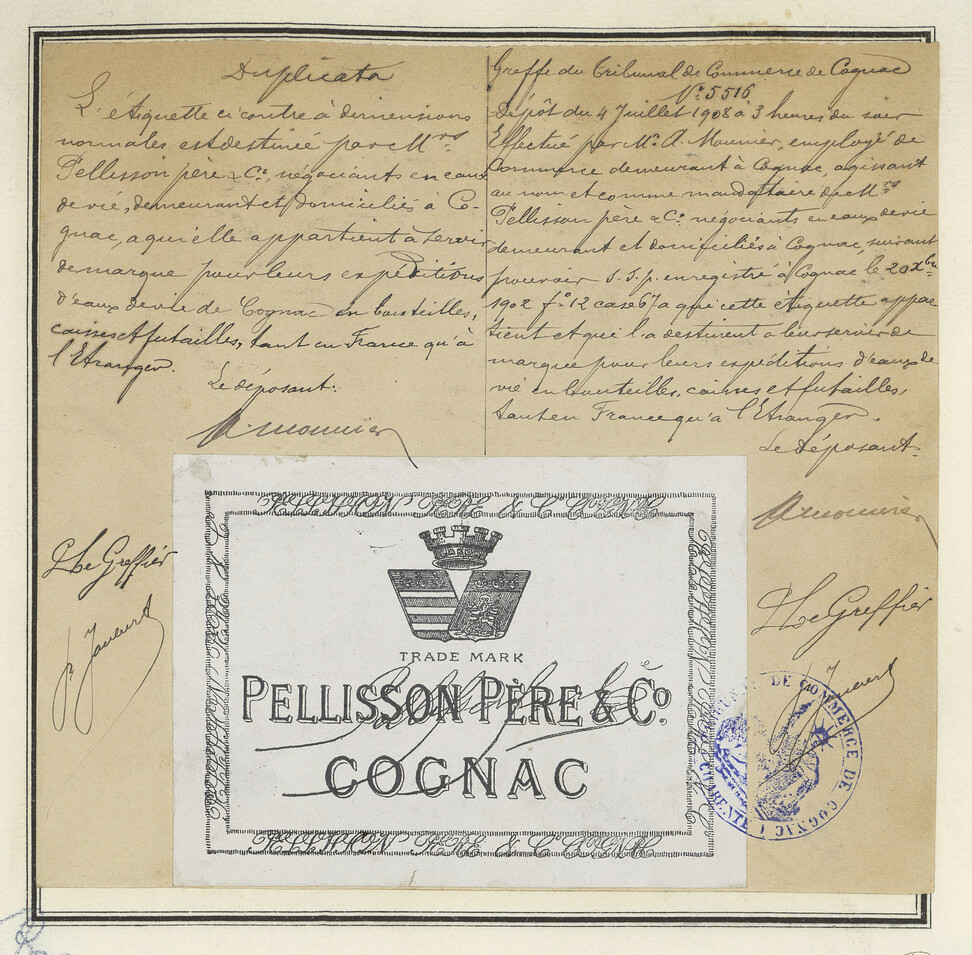 Duplicata
L'étiquette ci contre à dimensions
normales est destinée par M.rs
Pellisson père & Cie, négociants en eaux
de vie, demeurant et domiciliés à Co-
gnac, a qui elle appartient à servir
de marque pour leurs expéditions
d'eaux de vie de Cognac en bouteilles,
caisses et futailles, tant en France qu'à
l'Etranger.
Le déposant:
A Mounier
Le Greffier
Greffe du Tribunal de Commerce de Cognac
No. 5516
Dépôt du 4 Juillet 1908 à 3 heures du soir
Effectué par Mr. A. Mounier, employé de
Commerce demeurant à Cognac, agissant
au nom et comme mandataire de M.rs
Pellisson père & Cie. négociants en eaux de vie
demeurant et domiciliés à Cognac, suivant
pouvoir S.S.p. enregistré à Cognac, le 20 Xbre
1902 fo 12 case 67 a qui cette étiquette appar
tient et qui l'a destinent à leur servir de
marque pour leurs expéditions d'eaux de
vie en bouteilles, caisses et futailles,
tant en France qu'a l'Etranger.
Le déposant.
A Mounier
Le Greffier
PELLISSON PÈRE & Co COGNAC
TRADE MARK
PELLISSON PÈRE & Co.
COGNAC
TRIBUNAL DE COMMERCE DE COGNAC (CHARENTE)